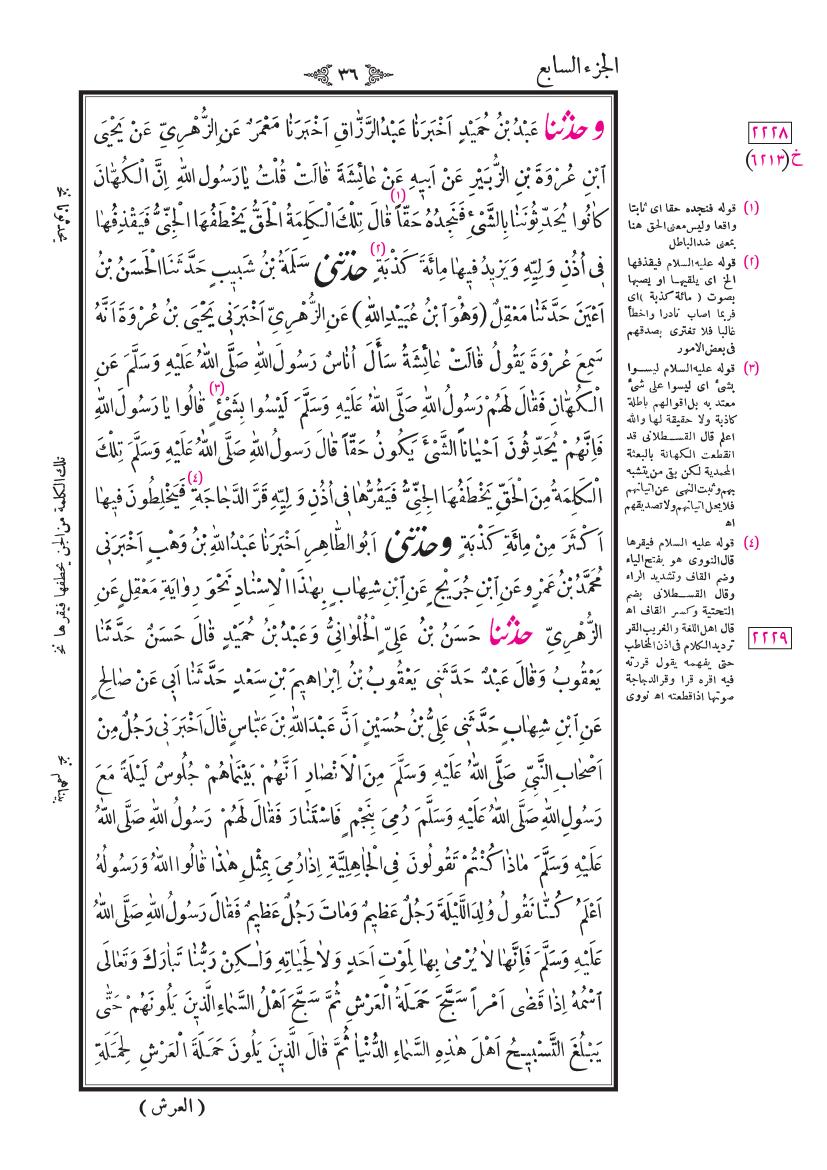 الجزء السابع
٣٦
وحدثنا عَبْدُ بْنُ حُمَيْدٍ اَخْبَرَنَا عَبْدُ الرَّزَّاقِ اَخْبَرَنَا مَعْمَرٌ عَنِ الزُّهْرِيِّ عَنْ يَحْيَى
ابْنِ عُرْوَةَ بْنِ الزُّبَيْرِ عَنْ اَبِيهِ عَنْ عَائِشَةَ قَالَتْ قُلْتُ يَارَسُولَ اللهِ اِنَّ الْكُهَّانَ
كَانُوا يُحَدِّثُونَنَا بِالشَّىْءِ فَنَجِدُهُ حَقّاً (١) قَالَ تِلْكَ الْكَلِمَةُ الْحَقُّ يَخْطَفُهَا الْجِنِّىُّ فَيَقْذِفُهَا
فِى اُذُنِ وَلِيِّهِ وَيَزِيدُ فِيهَا مِائَةَ كَذْبَةٍ (٢) حدثنى سَلَمَةُ بْنُ شَبِيبٍ حَدَّثَنَا الْحَسَنُ بْنُ
اَعْيَنَ حَدَّثَنَا مَعْقِلٌ (وَهُوَ ابْنُ عُبَيْدِ اللهِ) عَنِ الزُّهْرِىِّ اَخْبَرَنِى يَحْيَى بْنُ عُرْوَةَ اَنَّهُ
سَمِعَ عُرْوَةَ يَقُولُ قَالَتْ عَائِشَةُ سَأَلَ اُنَاسٌ رَسُولَ اللهِ صَلَّى اللهُ عَلَيْهِ وَسَلَّمَ عَنِ
الْكُهَّانِ فَقَالَ لَهُمْ رَسُولُ اللهِ صَلَّى اللهُ عَلَيْهِ وَسَلَّمَ لَيْسُوا بِشَىْءٍ (٣) قَالُوا يَارَسُولَ اللهِ
فَاِنَّهُمْ يُحَدِّثُونَ اَحْيَاناً الشَّىْءَ يَكُونُ حَقّاً قَالَ رَسُولُ اللهِ صَلَّى اللهُ عَلَيْهِ وَسَلَّمَ تِلْكَ
الْكَلِمَةُ مِنَ الْحَقِّ يَخْطَفُهَا الْجِنِّىُّ فَيَقُرُّهَا فِى اُذُنِ وَلِيِّهِ قَرَّ الدَّجَاجَةِ (٤) فَيَخْلِطُونَ فِيهَا
اَكْثَرَ مِنْ مِائَةِ كَذْبَةٍ وحدثنى اَبُو الطَّاهِرِ اَخْبَرَنَا عَبْدُ اللهِ بْنُ وَهْبٍ اَخْبَرَنِى
مُحَمَّدُ بْنُ عَمْرٍو عَنِ ابْنِ جُرَيْجٍ عَنِ ابْنِ شِهَابٍ بِهٰذَا الْاِسْنَادِ نَحْوَ رِوَايَةِ مَعْقِلٍ عَنِ
الزُّهْرِىِّ حدثنا حَسَنُ بْنُ عَلِىٍّ الْحُلْوَانِىُّ وَعَبْدُ بْنُ حُمَيْدٍ قَالَ حَسَنٌ حَدَّثَنَا
يَعْقُوبُ وَقَالَ عَبْدٌ حَدَّثَنِى يَعْقُوبُ بْنُ اِبْرَاهِيمَ بْنِ سَعْدٍ حَدَّثَنَا اَبِى عَنْ صَالِحٍ
عَنِ ابْنِ شِهَابٍ حَدَّثَنِى عَلِىُّ بْنُ حُسَيْنٍ اَنَّ عَبْدَ اللهِ بْنَ عَبَّاسٍ قَالَ اَخْبَرَنِى رَجُلٌ مِنْ
اَصْحَابِ النَّبِىِّ صَلَّى اللهُ عَلَيْهِ وَسَلَّمَ مِنَ الْاَنْصَارِ اَنَّهُمْ بَيْنَمَا هُمْ جُلُوسٌ لَيْلَةً مَعَ
رَسُولِ اللهِ صَلَّى اللهُ عَلَيْهِ وَسَلَّمَ رُمِىَ بِنَجْمٍ فَاسْتَنَارَ فَقَالَ لَهُمْ رَسُولُ اللهِ صَلَّى اللهُ
عَلَيْهِ وَسَلَّمَ مَاذَا كُنْتُمْ تَقُولُونَ فِى الْجَاهِلِيَّةِ اِذَا رُمِىَ بِمِثْلِ هٰذَا قَالُوا اللهُ وَرَسُولُهُ
اَعْلَمُ كُنَّا نَقُولُ وُلِدَ اللَّيْلَةَ رَجُلٌ عَظِيمٌ وَمَاتَ رَجُلٌ عَظِيمٌ فَقَالَ رَسُولُ اللهِ صَلَّى اللهُ
عَلَيْهِ وَسَلَّمَ فَاِنَّهَا لَا يُرْمَى بِهَا لِمَوْتِ اَحَدٍ وَلَا لِحَيَاتِهِ وَلٰكِنْ رَبُّنَا تَبَارَكَ وَتَعَالَى
اسْمُهُ اِذَا قَضَى اَمْراً سَبَّحَ حَمَلَةُ الْعَرْشِ ثُمَّ سَبَّحَ اَهْلُ السَّمَاءِ الَّذِينَ يَلُونَهُمْ حَتَّى
يَبْلُغَ التَّسْبِيحُ اَهْلَ هٰذِهِ السَّمَاءِ الدُّنْيَا ثُمَّ قَالَ الَّذِينَ يَلُونَ حَمَلَةَ الْعَرْشِ لِحَمَلَةِ
(العرش)
٢٢٢٨
خ (٦٢١٣)
(١) قوله فنجده حقا اى ثابتا
واقعا وليس معنى الحق هنا
بمعنى ضد الباطل
(٢) قوله عليه السلام فيقذفها
الخ اى يلقيها او يصبها
بصوت (مائة كذبة) اى
فربما اصاب نادرا واخطأ
غالبا فلا تغترى بصدقهم
فى بعض الامور
(٣) قوله عليه السلام ليسوا
بشئ اى ليسوا على شئ
معتد به بل اقوالهم باطلة
كاذبة ولا حقيقة لها والله
اعلم قال القسطلانى قد
انقطعت الكهانة بالبعثة
المحمدية لكن بقى من يتشبه
بهم وثبت النهى عن اتيانهم
فلا يحل اتيانهم ولا تصديقهم
اه
(٤) قوله عليه السلام فيقرها
قال النووى هو بفتح الياء
وضم القاف وتشديد الراء
وقال القسطلانى بضم
التحتية وكسر القاف اه
قال اهل اللغة والغريب القر
ترديد الكلام فى اذن المخاطب
حتى يفهمه يقول قررته
فيه اقره قرا وقر الدجاجة
صوتها اذا قطعته اه نووى
٢٢٢٩
تلك الكلمة من الجن يخطفها فيقرها نخ